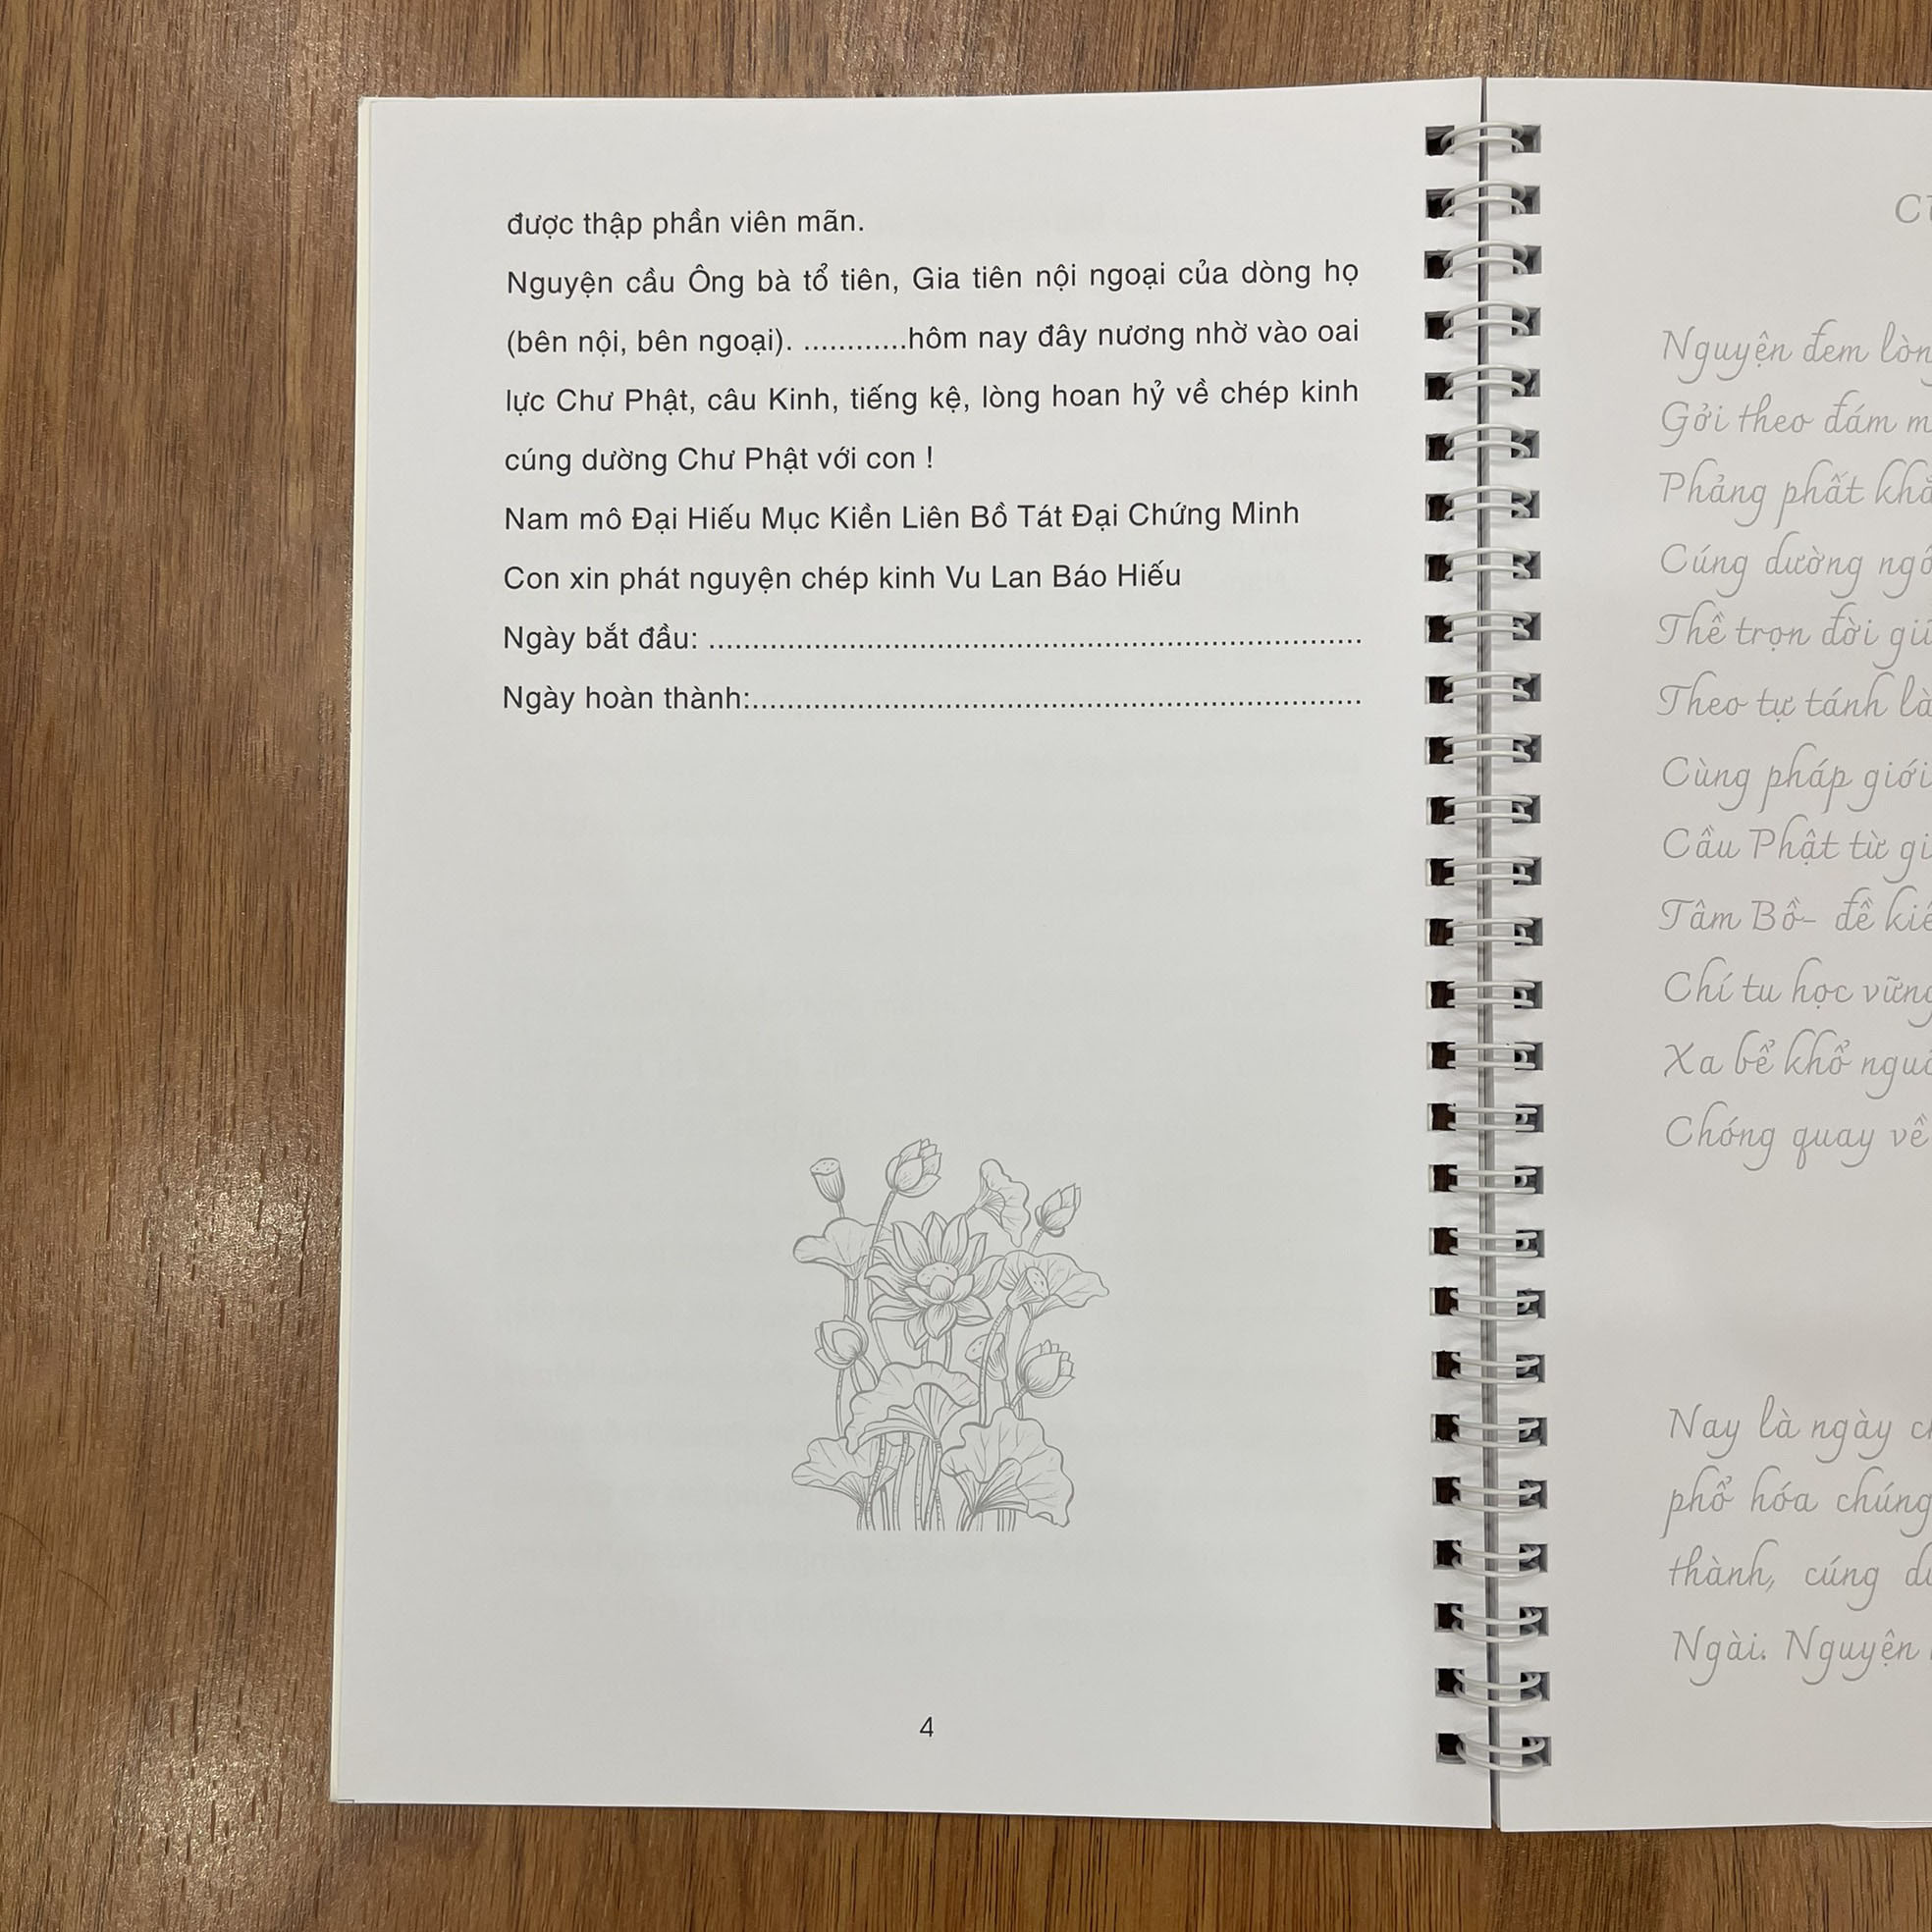 được thập phần viên mãn.
Nguyện cầu Ông bà tổ tiên, Gia tiên nội ngoại của dòng họ
(bên nội, bên ngoại). ............hôm nay đây nương nhờ vào oai
lực Chư Phật, câu Kinh, tiếng kệ, lòng hoan hỷ về chép kinh
cúng dường Chư Phật với con !
Nam mô Đại Hiếu Mục Kiền Liên Bồ Tát Đại Chứng Minh
Con xin phát nguyện chép kinh Vu Lan Báo Hiếu
Ngày bắt đầu: ...........................................................................
Ngày hoàn thành:......................................................................
4
Nguyện đem
Gởi theo đám
Phảng phất
Cúng dường
Thề trọn đời
Theo tự tánh
Cùng pháp giới
Cầu Phật từ
Tâm Bồ- đề
Chí tu học
Xa bể khổ
Chóng quay về
Nay là ngày
phổ hóa
thành, cúng
Ngài. Nguyện